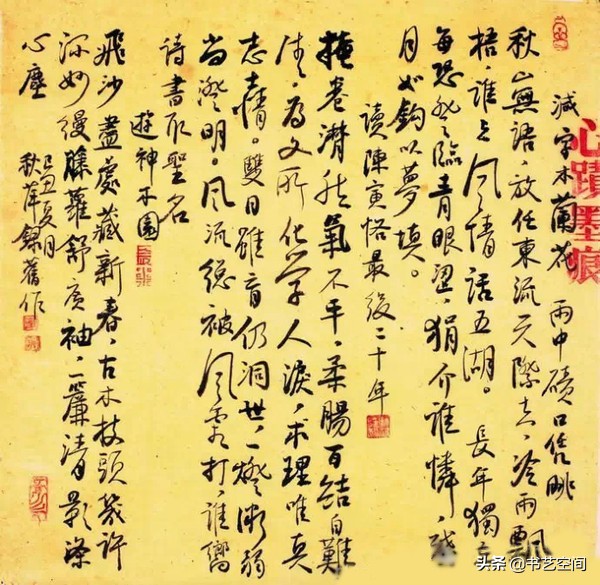 心蹟墨痕
減字木蘭花 雨中磧口信眺
秋山無語，放任東流天際去。冷雨飄
梧，誰與風情話五湖。長年獨立
每恐登臨青眼望。狷介誰憐，殘
月如鈎以夢填。
讀陳寅恪最後二十年
掩卷潸然氣不平，柔腸百結自難
為文所化學人淚，求理唯真
志情。雙目雖盲仍洞世，一燈漸弱
尚澄明。風流總被風雲打，誰嚮
詩書取聖名
遊神木園
飛沙盡處藏新春，古木枝頭幾許
深妙縵藤蘿舒廣袖，一簾清影滌
心塵
己丑夏月
秋萍錄舊作
头条 @书艺空间